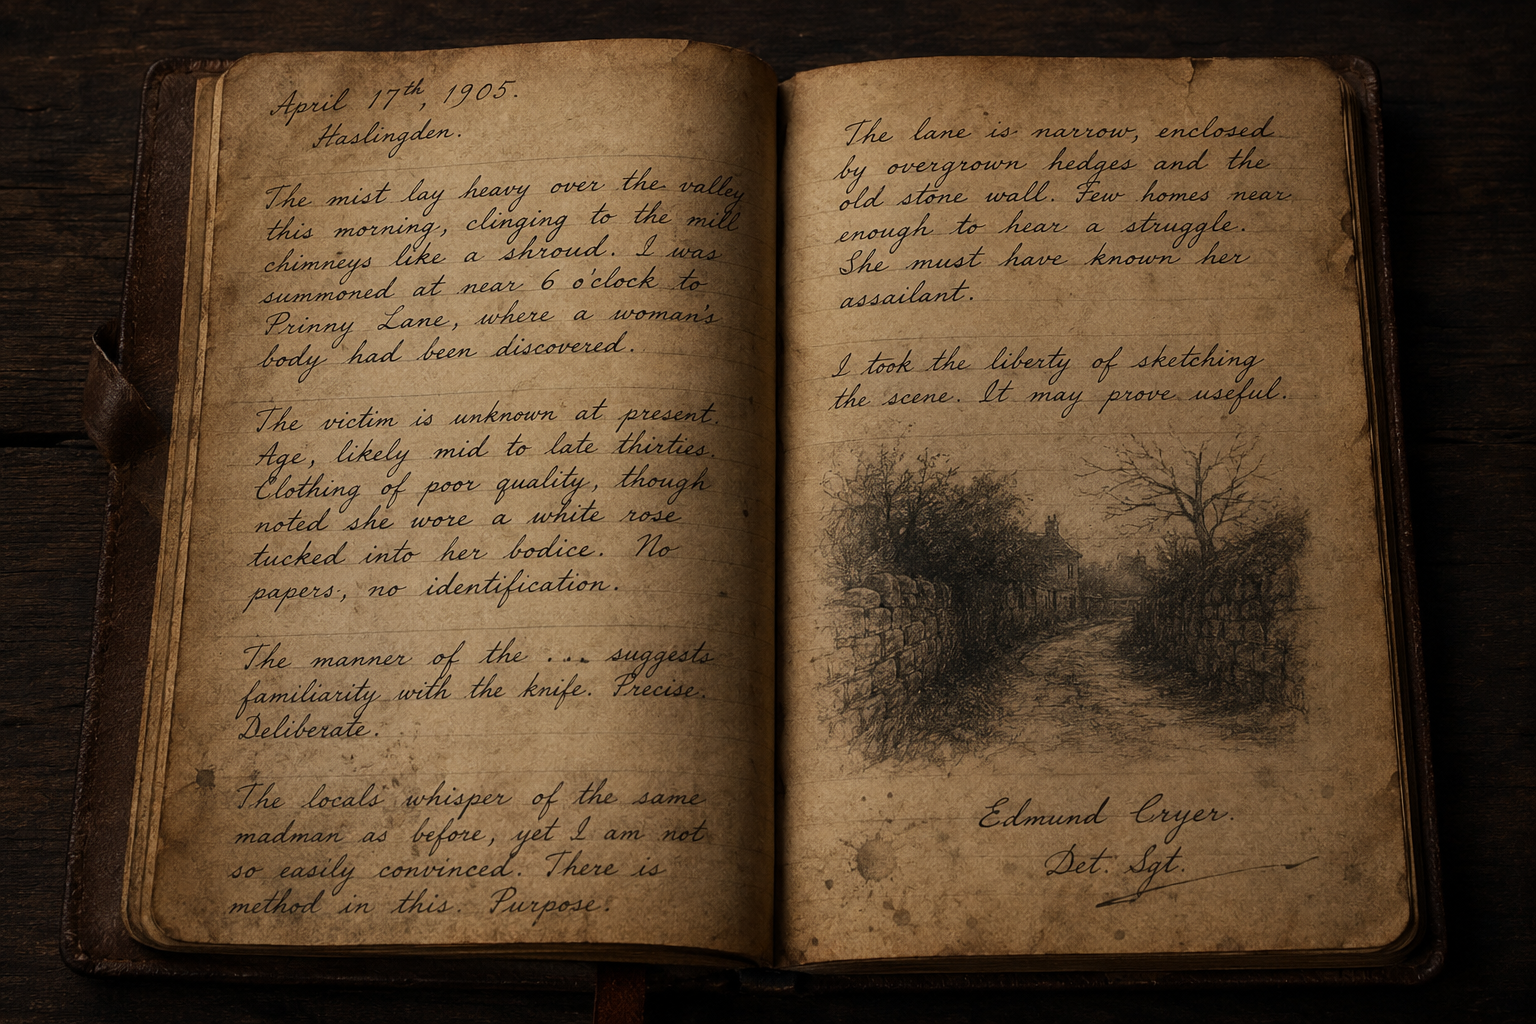 April 17th, 1905.
Haslingden.
The mist lay heavy over the valley
this morning, clinging to the mill
chimneys like a shroud. I was
summoned at near 6 o'clock to
Prinny Lane, where a woman's
body had been discovered.
The victim is unknown at present.
Age, likely mid to late thirties.
Clothing of poor quality, though
noted she wore a white rose
tucked into her bodice. No
papers, no identification.
The manner of the ... suggests
familiarity with the knife. Precise.
Deliberate.
The locals whisper of the same
madman as before, yet I am not
so easily convinced. There is
method in this. Purpose.
The lane is narrow, enclosed
by overgrown hedges and the
old stone wall. Few homes near
enough to hear a struggle.
She must have known her
assailant.
I took the liberty of sketching
the scene. It may prove useful.
Edmund Cryer.
Det. Sgt.